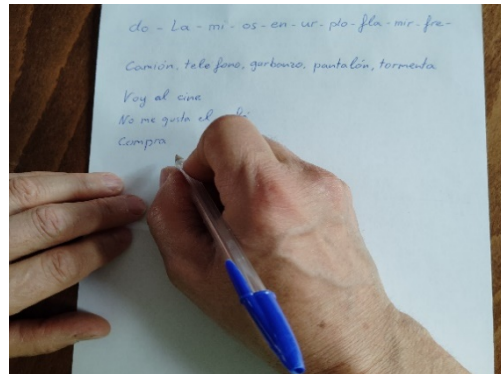 do - La - mi - os - en - ur - plo - fla - mir - fre -
Camión, telefono, garbanzo, pantalón, tormenta
Voy al cine
No me gusta el
Compra